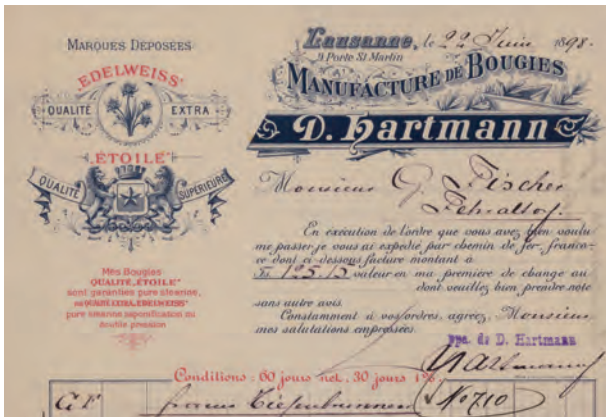 MARQUES DÉPOSÉES
"EDELWEISS"
QUALITÉ EXTRA
"ÉTOILE"
QUALITÉ SUPÉRIEURE
Mes Bougies
QUALITÉ „ÉTOILE"
sont garanties pure stéarine,
ou QUALITÉ EXTRA „EDELWEISS"
pure stéarine saponification ou
double pression
Lausanne, le 22 Juin 1898.
9, Porte St. Martin
MANUFACTURE DE BOUGIES
D. Hartmann
Monsieur G. Fischer
Fehraltof.
En exécution de l'ordre que vous avez bien voulu
me passer je vous ai expédié par chemin de fer, franco-
ce dont ci-dessous facture montant à
Fs. 125.15 valeur en ma première de change au
dont veuillez bien prendre note
sans autre avis.
Constamment à vos ordres, agréez, Monsieur,
mes salutations empressées.
ppa. de D. Hartmann
Hartmann
Conditions: 60 jours net, 30 jours 1%
G F franco Tiefenbrunnen No 710